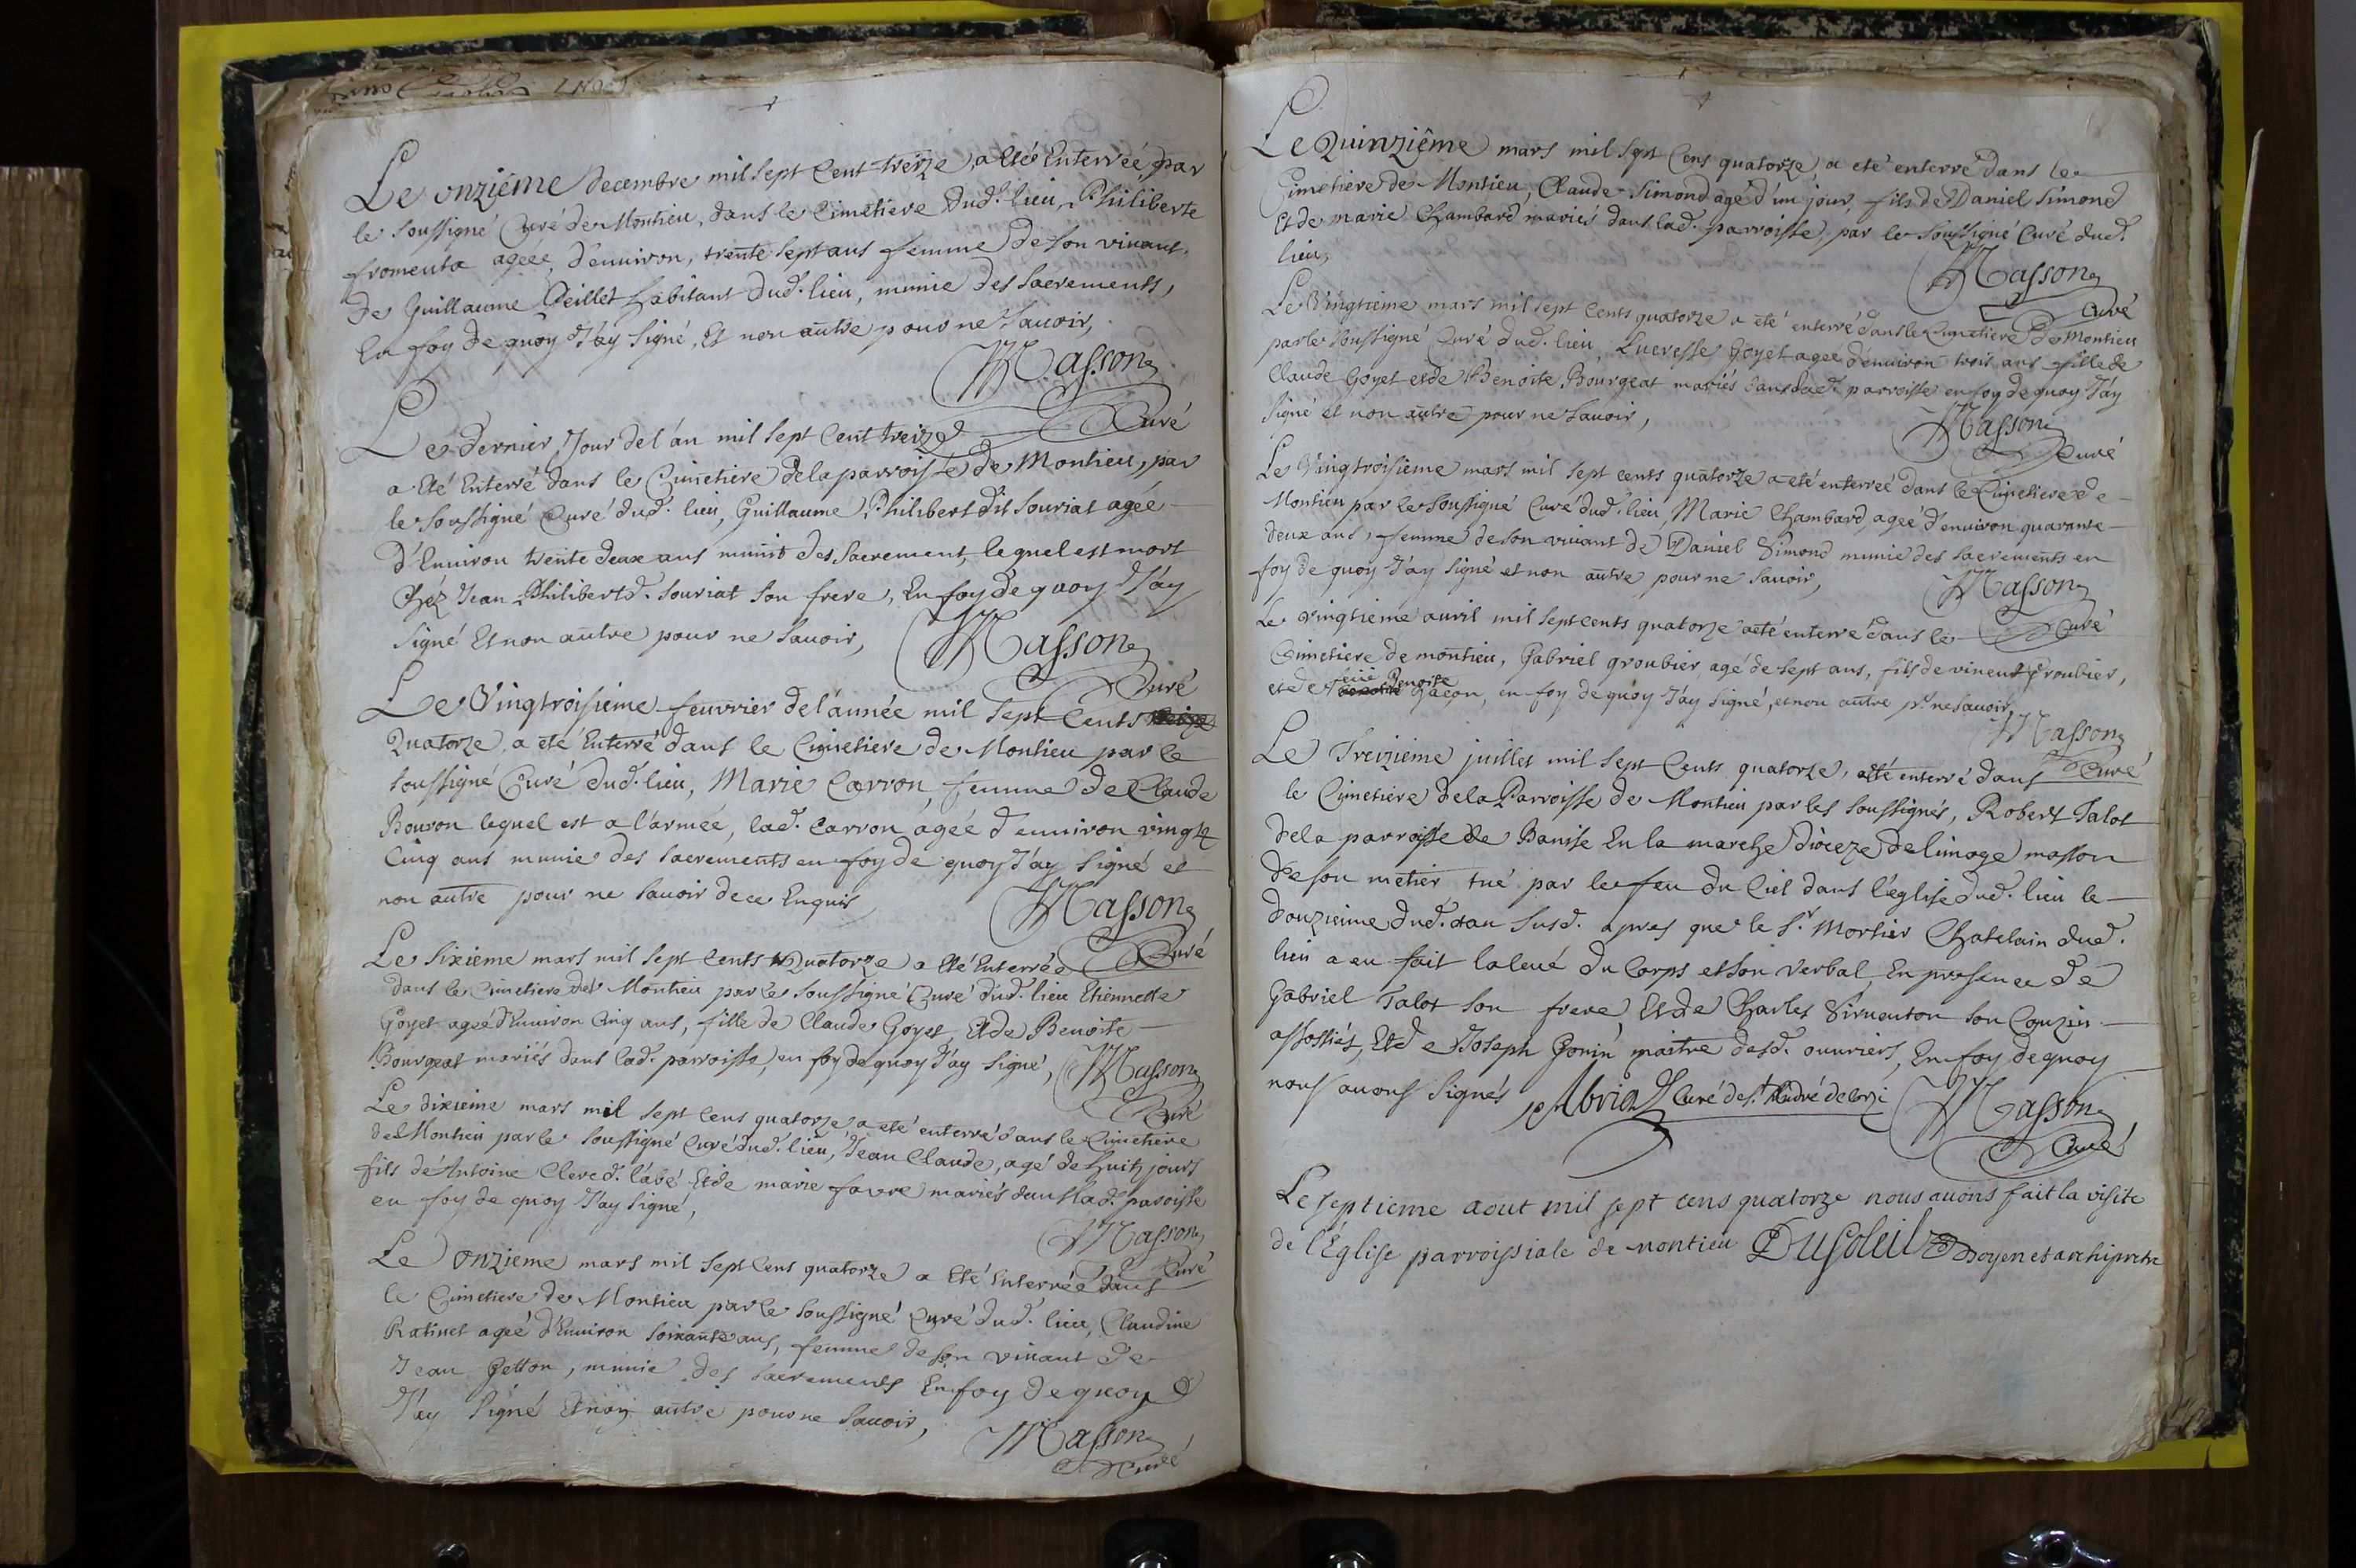 Le onzième decembre mil sept Cent treize, a eté Enterrée, par
le soussigné Curé de Montieu, dans le Cimetiere dud. lieu, Philiberte
fromenta agéée, d'enuiron, trente sept ans femme de son viuant,
de Guillaume Peillet habitant dud. lieu, munie des sacrements,
En foy de quoy J'ay signé, Et non autre pour ne sauoir,
Masson
Curé
Le dernier, Jour de l'an mil sept Cent treize
a Eté Enterré dans le Cimetiere de la parroisse de Montieu, par
le soussigné Curé dud. lieu, Guillaume Philibert dit Souriat agée
d'Enuiron trente deux ans munit des sacrement, lequel est mort
chéz Jean Philibert d. souriat son frere, En foy de quoy J'ay
signé Et non autre pour ne sauoir,
Masson
Curé
Le Vingtroisieme feuvrier de l'année mil sept Cents
Quatorze, a eté Enterré dans le Cimetiere de Montieu par le
soussigné Curé dud. lieu, Marie Carron, femme de Claude
Bouron lequel est a l'armée, lad. Carron agéé d'enuiron vingt
Cinq ans munie des sacrements en foy de quoy J'ay signé et
non autre pour ne sauoir de ce Enquis
Masson
Curé
Le sixieme mars mil sept Cents Quatorze a Eté Enterrée
dans le Cimetiere de Montieu par le soussigné Curé dud. lieu Etiennette
Goyet ageé d'Enuiron Cinq ans, fille de Claude Goyet, Et de Benoite
Bourgeat mariés dans lad. parroisse, en foy de quoy J'ay signé,
Masson
Curé
Le dixieme mars mil sept Cens quatorze a eté enterré dans le Cimetiere
de Montieu par le soussigné Curé dud. lieu, Jean Claude, agé de huit jours
fils de Antoine Clerc d. l'abé Et de marie favre mariés dans lad. paroisse
en foy de quoy J'ay signé,
Masson
Curé
Le onzieme mars mil sept Cens quatorze a Eté Enterrée dans
le Cimetiere de Montieu par le soussigné Curé dud. lieu, Claudine
Ratinet ageé d'Enuiron soixante ans, femme de son viuant de
Jean Petton, munie des sacrements En foy de quoy
J'ay signé Et non autre pour ne sauoir,
Masson
Curé
Le Quinzième mars mil sept Cens quatorze, a eté enterré dans le
Cimetiere de Montieu, Claude Simond agé d'un jour, fils de Daniel Simond
Et de marie Chambard mariés dans lad. parroisse, par le soussigné Curé dud.
lieu,
Masson
Curé
Le Vingtieme mars mil sept Cents quatorze a eté enterré dans le Cimetiere de Montieu
par le soussigné Curé dud. lieu, Lucresse Goyet ageé d'enuiron trois ans fille de
Claude Goyet et de Benoite Bourgeat mariés dans lad. parroisse en foy de quoy J'ay
signé et non autre pour ne sauoir,
Masson
Curé
Le Vingtroisieme mars mil sept cents quatorze a eté enterreé dans le Cimetiere de
Montieu par le soussigné Curé dud. lieu, Marie Chambard, ageé d'enuiron quarante
deux ans, femme de son viuant de Daniel Simond munie des sacrements en
foy de quoy J'ay signé et non autre pour ne sauoir,
Masson
Curé
Le vingtieme auril mil sept cents quatorze a eté enterre dans le
Cimetiere de montieu, Gabriel groubier, agé de sept ans, fils de vincent Groubier,
et de feue Benoite Gaçon, en foy de quoy J'ay signé, et non autre pr. ne sauoir,
Masson
Curé
Le Treizieme juillet mil sept Cents quatorze, a eté enterré dans
le Cimetiere de la Parroisse de Montieu par les soussignés, Robert Talot
de la parroisse de Banise En la marche dioceze de limoge masson
de son metier tué par le feu du Ciel dans l'église dud. lieu le
douzieme dud. et an susd. apres que le Sr. Mortier Chatelain dud.
lieu a eu fait la leué du Corps et son verbal En presence de
Gabriel Talot son frere Et de Charles Siruenton son Couzin
assossiés, Et de Joseph Gonin maitre desd. ouuriers, En foy de quoy
nous auons signés
Abrial Curé de St. André de Corzi
Masson
Curé
Le septieme aout mil sept cens quatorze nous auons fait la visite
de l'Église parroissiale de montieu Dusoleil Doyen et archipretre